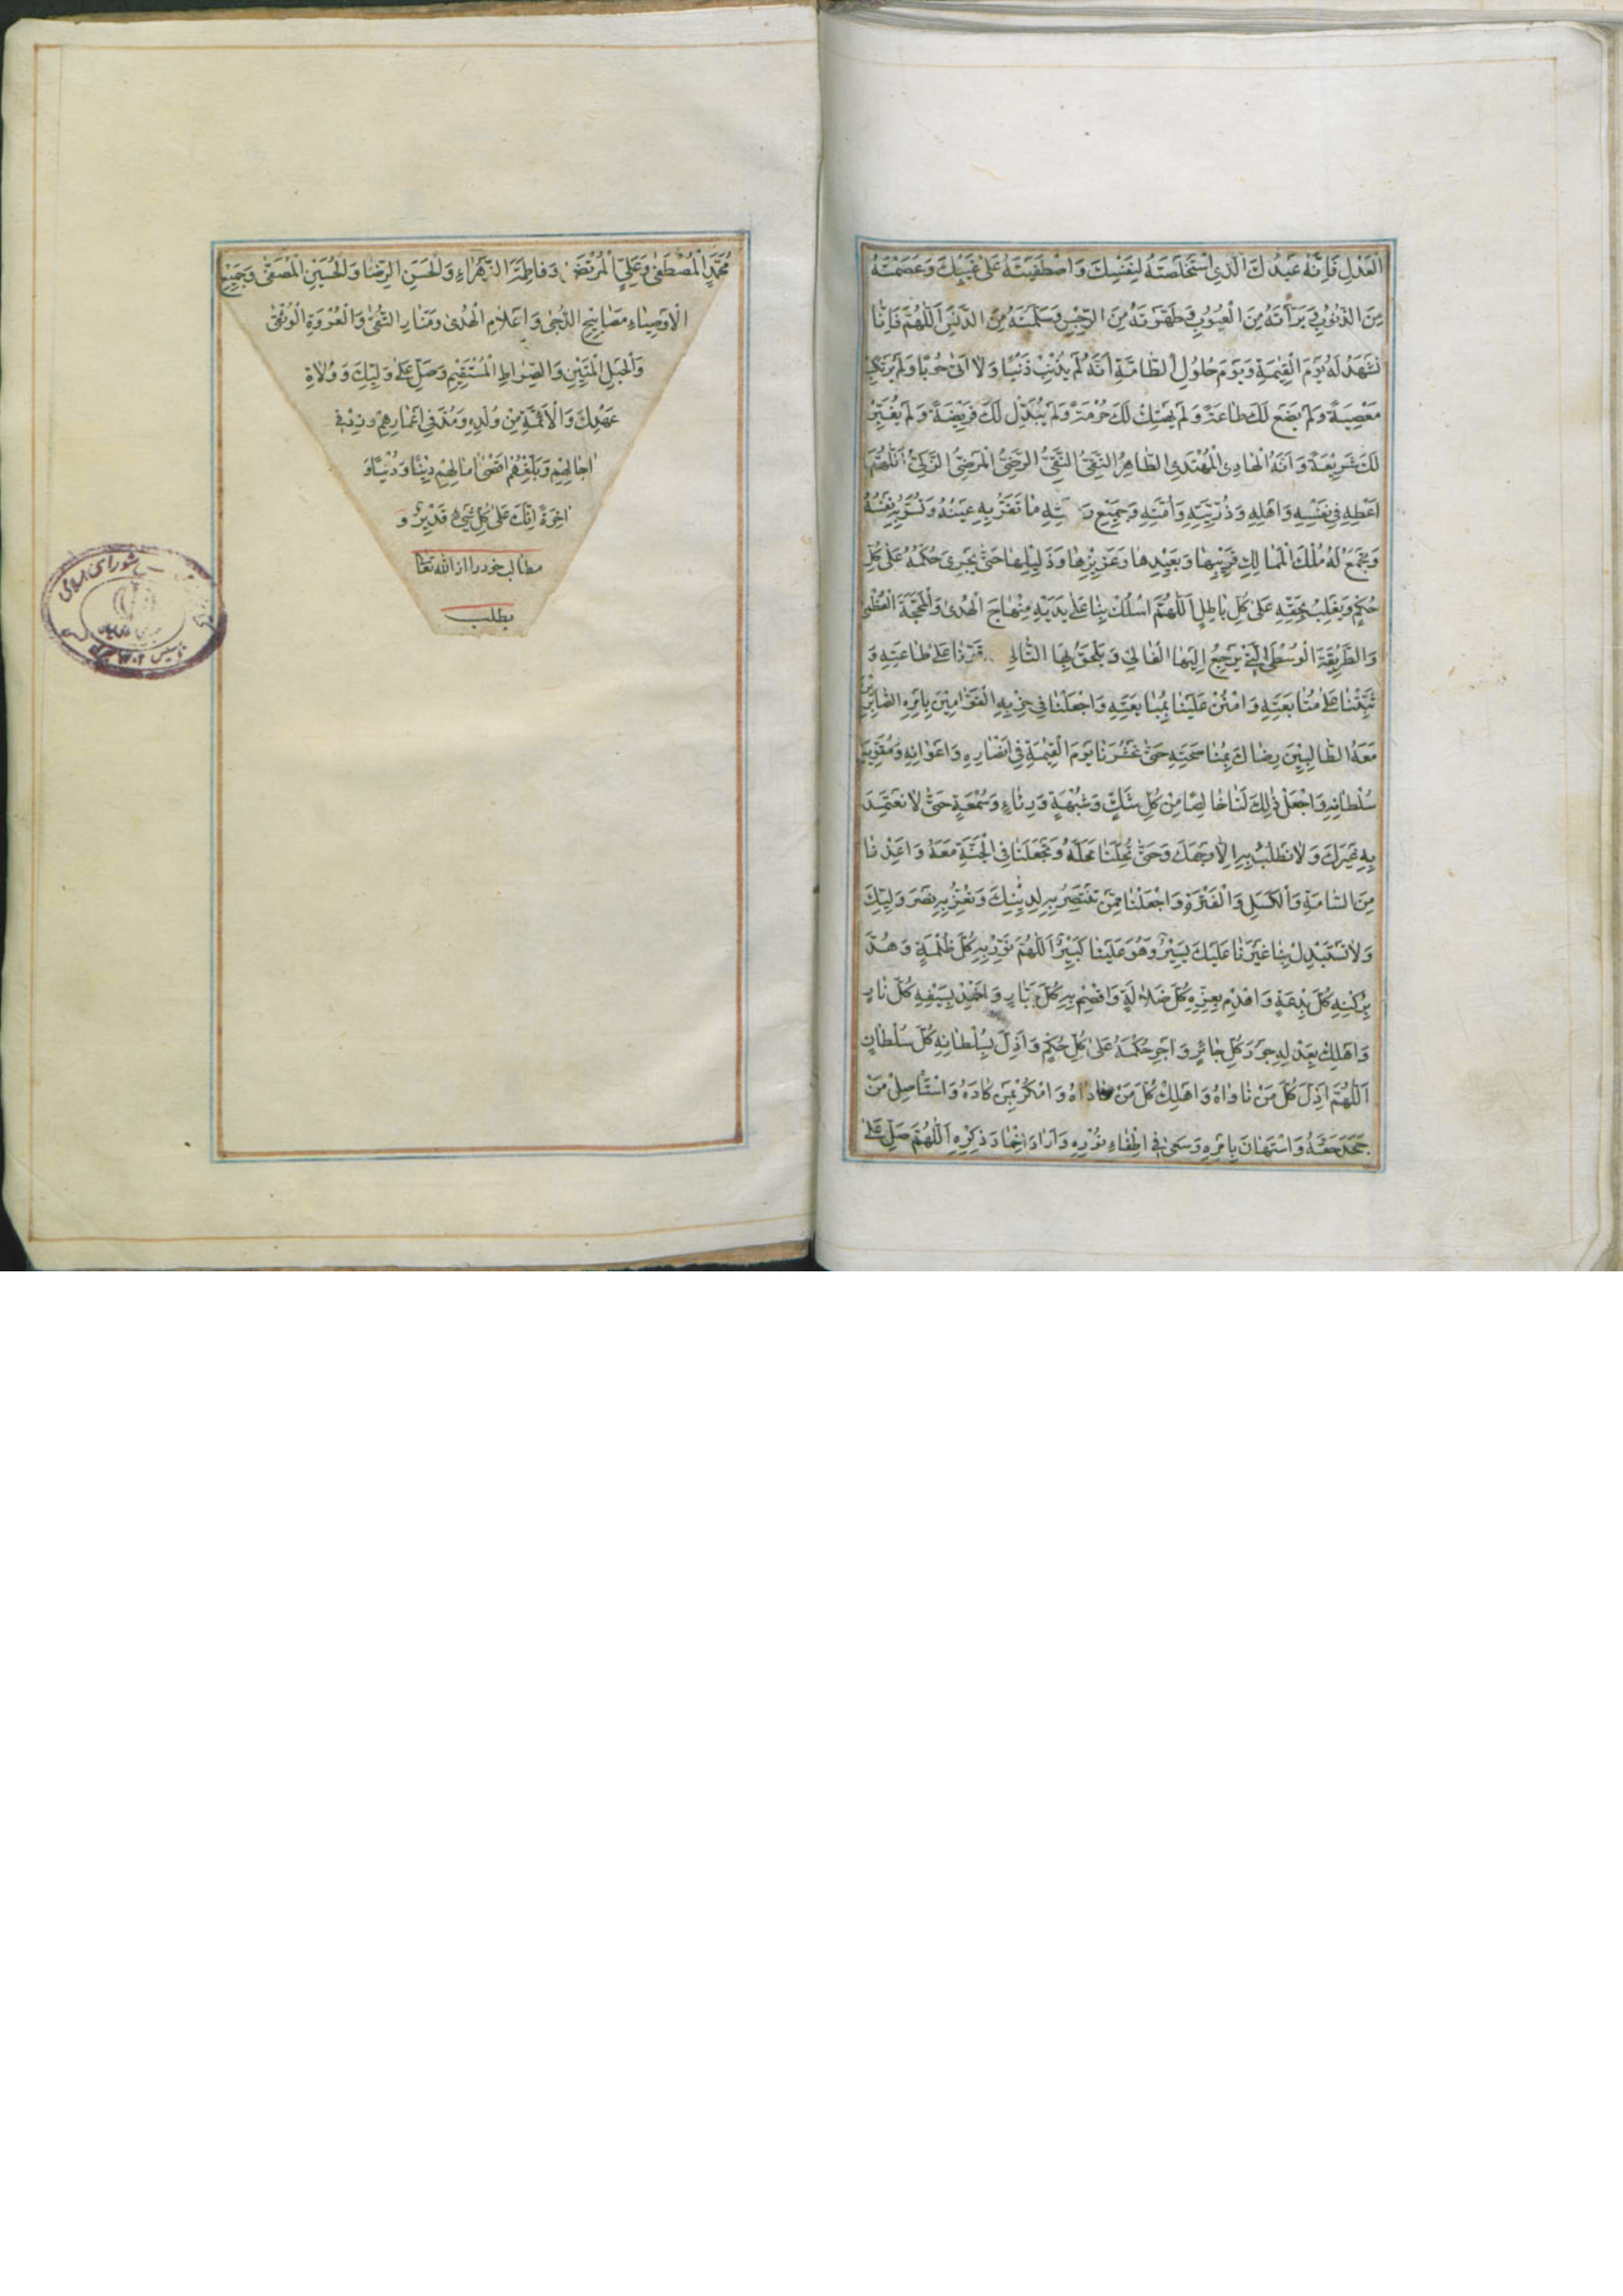 الْعَدْلِ فَاِنَّهُ عَبْدُكَ الَّذِی اسْتَخْلَصْتَهُ لِنَفْسِكَ وَاصْطَفَیْتَهُ عَلٰی غَیْبِكَ وَعَصَمْتَهُ
مِنَ الذُّنُوبِ وَبَرَّأْتَهُ مِنَ الْعُیُوبِ وَطَهَّرْتَهُ مِنَ الرِّجْسِ وَسَلَّمْتَهُ مِنَ الدَّنَسِ اَللّٰهُمَّ فَاِنَّا
نَشْهَدُ لَهُ یَوْمَ الْقِیٰمَةِ وَیَوْمَ حُلُولِ الطَّامَّةِ اَنَّهُ لَمْ یُذْنِبْ ذَنْبًا وَلَا اَتٰی حُوبًا وَلَمْ یَرْتَكِبْ
مَعْصِیَةً وَلَمْ یَضَعْ لَكَ طَاعَةً وَلَمْ یَهْتِكْ لَكَ حُرْمَةً وَلَمْ یُبَدِّلْ لَكَ فَرِیضَةً وَلَمْ یُغَیِّرْ
لَكَ شَرِیعَةً وَاَنَّهُ الْهَادِی الْمُهْتَدِی الطَّاهِرُ التَّقِیُّ النَّقِیُّ الرَّضِیُّ الْمَرْضِیُّ الزَّكِیُّ اَللّٰهُمَّ
اَعْطِهِ فِی نَفْسِهِ وَاَهْلِهِ وَذُرِّیَّتِهِ وَاُمَّتِهِ وَجَمِیْعِ رَ تِهِ مَا تُقِرُّ بِهِ عَیْنَهُ وَتَسُرُّ بِهِ نَفْسَهُ
وَتَجْمَعُ لَهُ مُلْكَ الْمَمَالِكِ قَرِیبِهَا وَبَعِیدِهَا وَعَزِیزِهَا وَذَلِیلِهَا حَتّٰی یَجْرِیَ حُكْمُهُ عَلٰی كُلِّ
حُكْمٍ وَیَغْلِبَ بِحَقِّهِ عَلٰی كُلِّ بَاطِلٍ اَللّٰهُمَّ اسْلُكْ بِنَا عَلٰی یَدَیْهِ مِنْهَاجَ الْهُدٰی وَالْمَحَجَّةَ الْعُظْمٰی
وَالطَّرِیقَةَ الْوُسْطَی الَّتِی یَرْجِعُ اِلَیْهَا الْغَالِی وَیَلْحَقُ بِهَا التَّالِی قَوِّنَا عَلٰی طَاعَتِهِ وَ
ثَبِّتْنَا عَلٰی مُتَابَعَتِهِ وَامْنُنْ عَلَیْنَا بِمُتَابَعَتِهِ وَاجْعَلْنَا فِی حِزْبِهِ الْقَوَّامِینَ بِاَمْرِهِ الصَّابِرِینَ
مَعَهُ الطَّالِبِیْنَ رِضَاكَ بِمُنَاصَحَتِهِ حَتّٰی تَحْشُرَنَا یَوْمَ الْقِیٰمَةِ فِی اَنْصَارِهِ وَاَعْوَانِهِ وَمُقَوِّیَةِ
سُلْطَانِهِ وَاجْعَلْ ذٰلِكَ لَنَا خَالِصًا مِنْ كُلِّ شَكٍّ وَشُبْهَةٍ وَرِئَاءٍ وَسُمْعَةٍ حَتّٰی لَا نَعْتَمِدَ
بِهِ غَیْرَكَ وَلَا نَطْلُبَ بِهِ اِلَّا وَجْهَكَ وَحَتّٰی تُحِلَّنَا مَحَلَّهُ وَتَجْعَلَنَا فِی الْجَنَّةِ مَعَهُ وَاَعِذْنَا
مِنَ السَّامَةِ وَالْكَسَلِ وَالْفَتْرَةِ وَاجْعَلْنَا مِمَّنْ تَنْتَصِرُ بِهِ لِدِیْنِكَ وَتُعِزُّ بِهِ نَصْرَ وَلِیِّكَ
وَلَا تَسْتَبْدِلْ بِنَا غَیْرَنَا عَلَیْكَ یَسِیْرٌ وَهُوَ عَلَیْنَا كَبِیْرٌ اَللّٰهُمَّ نَوِّرْ بِهِ كُلَّ ظُلْمَةٍ وَهُدَّ
بِرُكْنِهِ كُلَّ بِدْعَةٍ وَاهْدِمْ بِعِزِّهِ كُلَّ ضَلَالَةٍ وَاقْصِمْ بِهِ كُلَّ جَبَّارٍ وَاخْمِدْ بِسَیْفِهِ كُلَّ نَارٍ
وَاَهْلِكْ بِعَدْلِهِ جَوْرَ كُلِّ جَائِرٍ وَاَجْرِ حُكْمَهُ عَلٰی كُلِّ حُكْمٍ وَاَذِلَّ بِسُلْطَانِهِ كُلَّ سُلْطَانٍ
اَللّٰهُمَّ اَذِلَّ كُلَّ مَنْ نَاوَاهُ وَاَهْلِكْ كُلَّ مَنْ عَادَاهُ وَامْكُرْ بِمَنْ كَادَهُ وَاسْتَأْصِلْ مَنْ
جَحَدَ حَقَّهُ وَاسْتَهَانَ بِاَمْرِهِ وَسَعٰی فِی اِطْفَاءِ نُوْرِهِ وَاَرَادَ اِخْمَادَ ذِكْرِهِ اَللّٰهُمَّ صَلِّ عَلٰی
مُحَمَّدٍ الْمُصْطَفٰی وَعَلِیٍّ الْمُرْتَضٰی وَفَاطِمَةَ الزَّهْرَاءِ وَالْحَسَنِ الرِّضَا وَالْحُسَیْنِ الْمُصَفّٰی وَجَمِیْعِ
الْاَوْصِیَاءِ مَصَابِیْحِ الدُّجٰی وَاَعْلَامِ الْهُدٰی وَمَنَارِ التُّقٰی وَالْعُرْوَةِ الْوُثْقٰی
وَالْحَبْلِ الْمَتِیْنِ وَالصِّرَاطِ الْمُسْتَقِیْمِ وَصَلِّ عَلٰی وَلِیِّكَ وَوُلَاةِ
عَهْدِكَ وَالْاَئِمَّةِ مِنْ وُلْدِهِ وَمُدَّ فِی اَعْمَارِهِمْ وَزِدْ فِی
اٰجَالِهِمْ وَبَلِّغْهُمْ اَقْصٰی اٰمَالِهِمْ دِیْنًا وَدُنْیًا وَ
اٰخِرَةً اِنَّكَ عَلٰی كُلِّ شَیْءٍ قَدِیْرٌ وَ
مطالب خود را از الله تعا
بطلب
شورای اسلامی